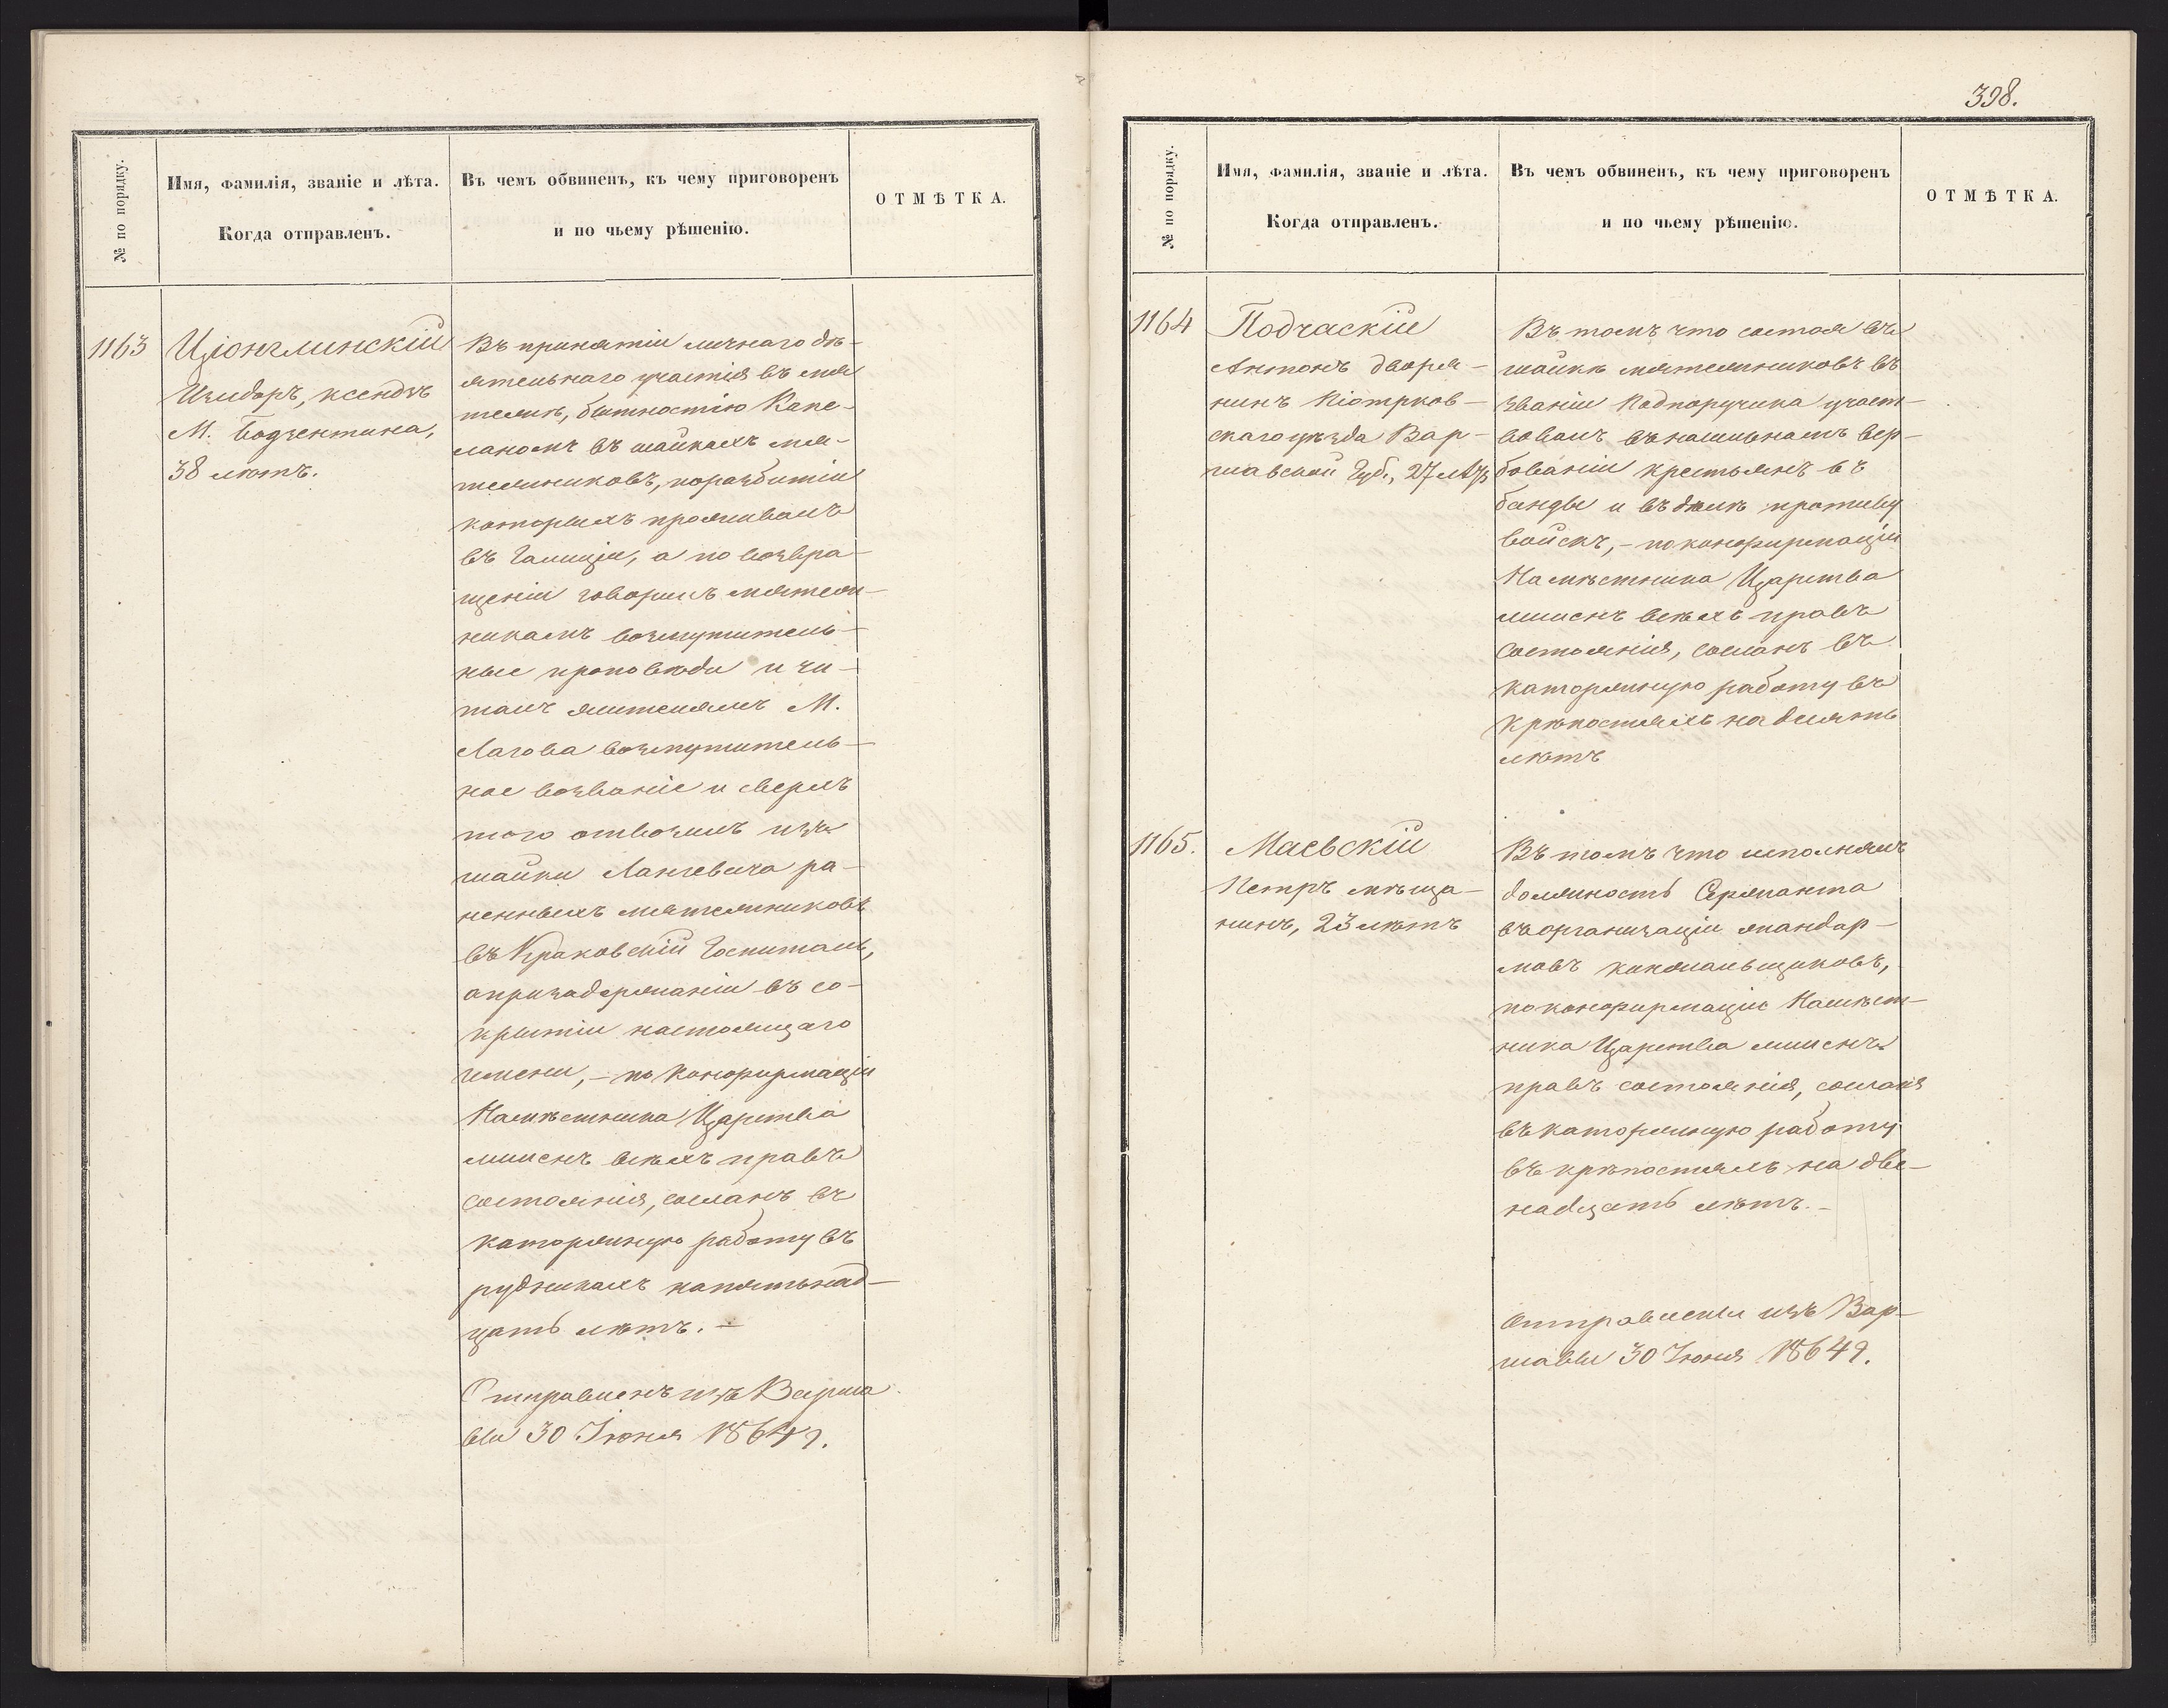 № по порядку.
Имя, фамилія, званіе и лѣта.
Когда отправленъ.
Въ чемъ обвиненъ, къ чему приговоренъ
и по чьему рѣшенію.
ОТМѢТКА.
1163
Ціонглинскій
Изидоръ, ксендзъ
М. Бодзентина,
38 лѣтъ.
Въ принятіи личнаго дѣ-
ятельнаго участія въ мя
тежѣ, бытностію Капе-
ланомъ въ шайкахъ мя-
тежниковъ, поразбитіи
которыхъ проживалъ
въ Галиціи, а по возвра-
щеніи говорилъ мятеж-
никамъ возмутитель-
ные проповѣди и чи-
талъ жителямъ М.
Лагова возмутитель-
ное воззваніе и сверхъ
того отвозилъ изъ
шайки Лангевича ра-
ненныхъ мятежниковъ
въ Краковскій Госпиталь,
а при задержаніи въ со-
крытіи настоящаго
имени, - по конфирмаціи
Намѣстника Царства
лишенъ всѣхъ правъ
состоянія, сосланъ въ
каторжную работу въ
рудникахъ на пятьнад-
цать лѣтъ. -
Отправленъ изъ Варша
вы 30 Іюня 1864 г.
398.
№ по порядку.
Имя, фамилія, званіе и лѣта.
Когда отправленъ.
Въ чемъ обвиненъ, къ чему приговоренъ
и по чьему рѣшенію.
ОТМѢТКА.
1164
Подчаскій
Антонъ дворя-
нинъ Піотрков-
скаго уѣзда Вар-
шавской Губ., 27 лѣтъ
Въ томъ что состоя въ
шайкѣ мятежниковъ въ
званіи Подпоручика участ-
вовалъ въ насильномъ вер-
бованіи крестьянъ въ
банды и въ дѣлѣ противу
войскъ, - по конфирмаціи
Намѣстника Царства
лишенъ всѣхъ правъ
состоянія, сосланъ въ
каторжную работу въ
крѣпостяхъ на десять
лѣтъ
1165.
Маевскій
Петръ мѣща-
нинъ, 23 лѣтъ
Въ томъ что исполнялъ
должность Сержанта
въ организаціи жандар-
мовъ кинжальщиковъ,
по конфирмаціи Намѣст-
ника Царства лишенъ
правъ состоянія, сосланъ
въ каторжную работу
въ крѣпостяхъ на две-
надцать лѣтъ. -
Отправлены изъ Вар-
шавы 30 Іюня 1864 г.